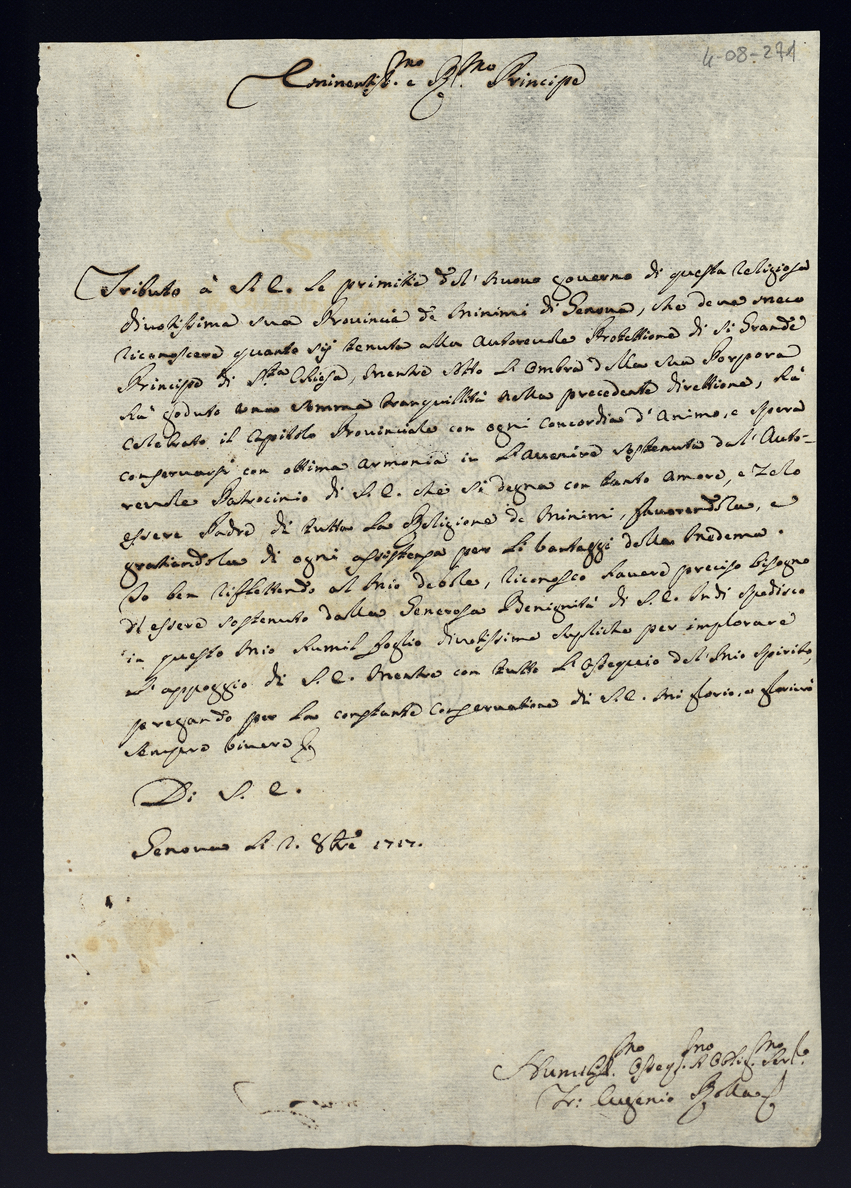 4-08-271
Eminentiss.mo e R.mo Principe
Tributo à V. E. le primitie dell' nuovo governo di questa religiosa
divotissima sua Provincia de Minimi di Genova, che deve meco
riconoscere quanto sij tenuta alla autorevole Protettione di sì Grande
Principe di S.ta Chiesa, mentre sotto l'ombra della sua Porpora
hà goduto una somma tranquillità nella precedente direttione, hà
celebrato il Capitolo Provinciale con ogni concordia d'Animo, e spera
conservarsi con ottima armonia in l'avenire sostenuta dal' Auto-
revole Patrocinio di V. E. che si degna con tanto amore, e Zelo
essere Padre di tutta la Religione de Minimi, favorendola, e
gratiandola di ogni assistenza per li vantaggi della medema.
Io ben riflettendo al mio debole, riconosco havere preciso bisogno
d'essere sostenuto dalla Generosa Benignità di V. E. Indi spedisco
in questo mio humil foglio divotissime supliche per implorare
l'appoggio di V. E. mentre con tutto l'ossequio del mio spirito,
pregando per la constante conservatione di V. E. mi glorio, e gloriarò
sempre vivere
Di V. E.
Genova li 2. 8bre 1717.
Humiliss.mo Osseq.mo et Obblig.mo Ser.e
Fr: Eugenio Bolla